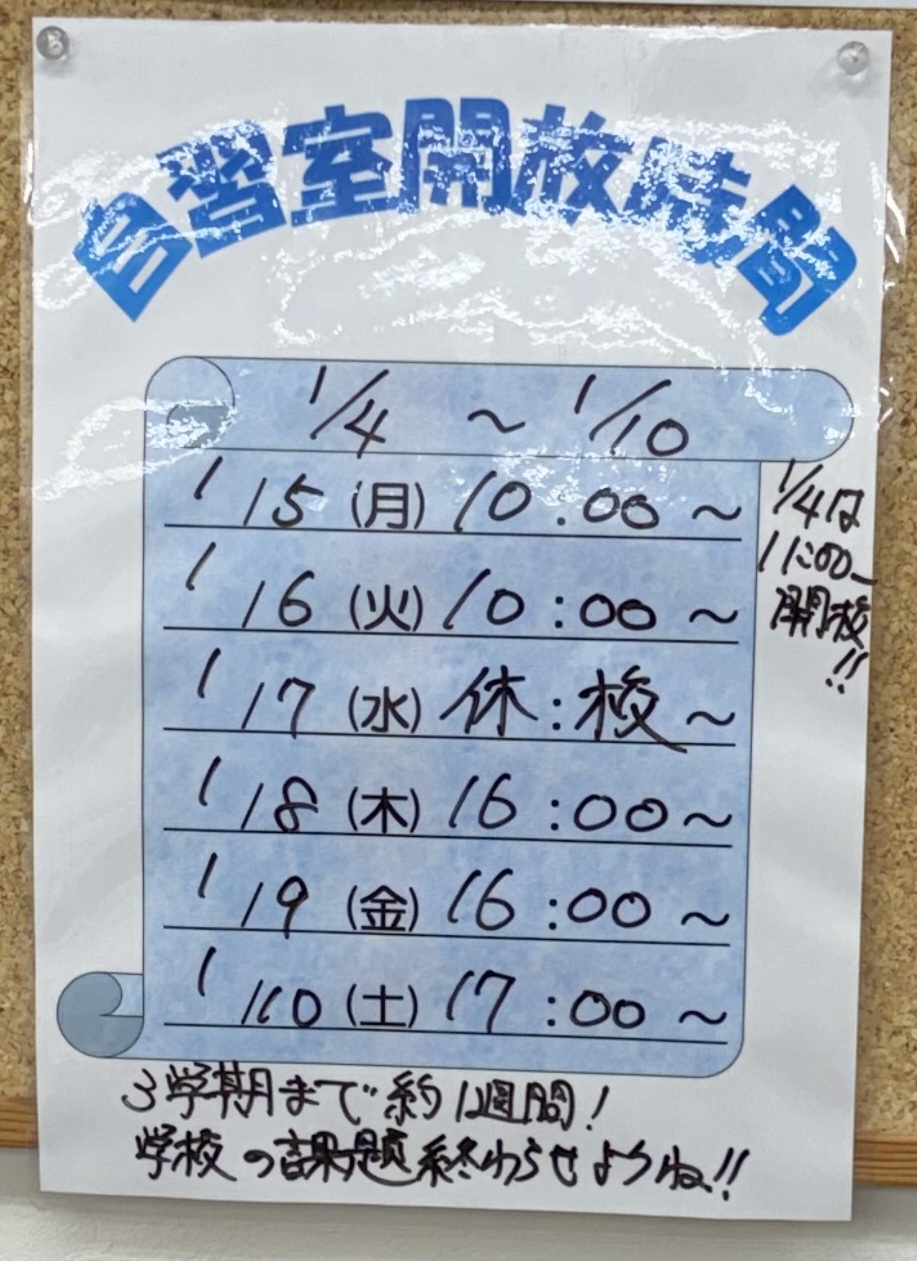 自習室開放時間
1/4 ~ 1/10
1/5 (月) 10:00~
1/6 (火) 10:00~
1/7 (水) 休:校~
1/8 (木) 16:00~
1/9 (金) 16:00~
1/10 (土) 17:00~
1/4は
11:00~
開校
!!
3学期まで約1週間!
学校の課題終わらせようね!!